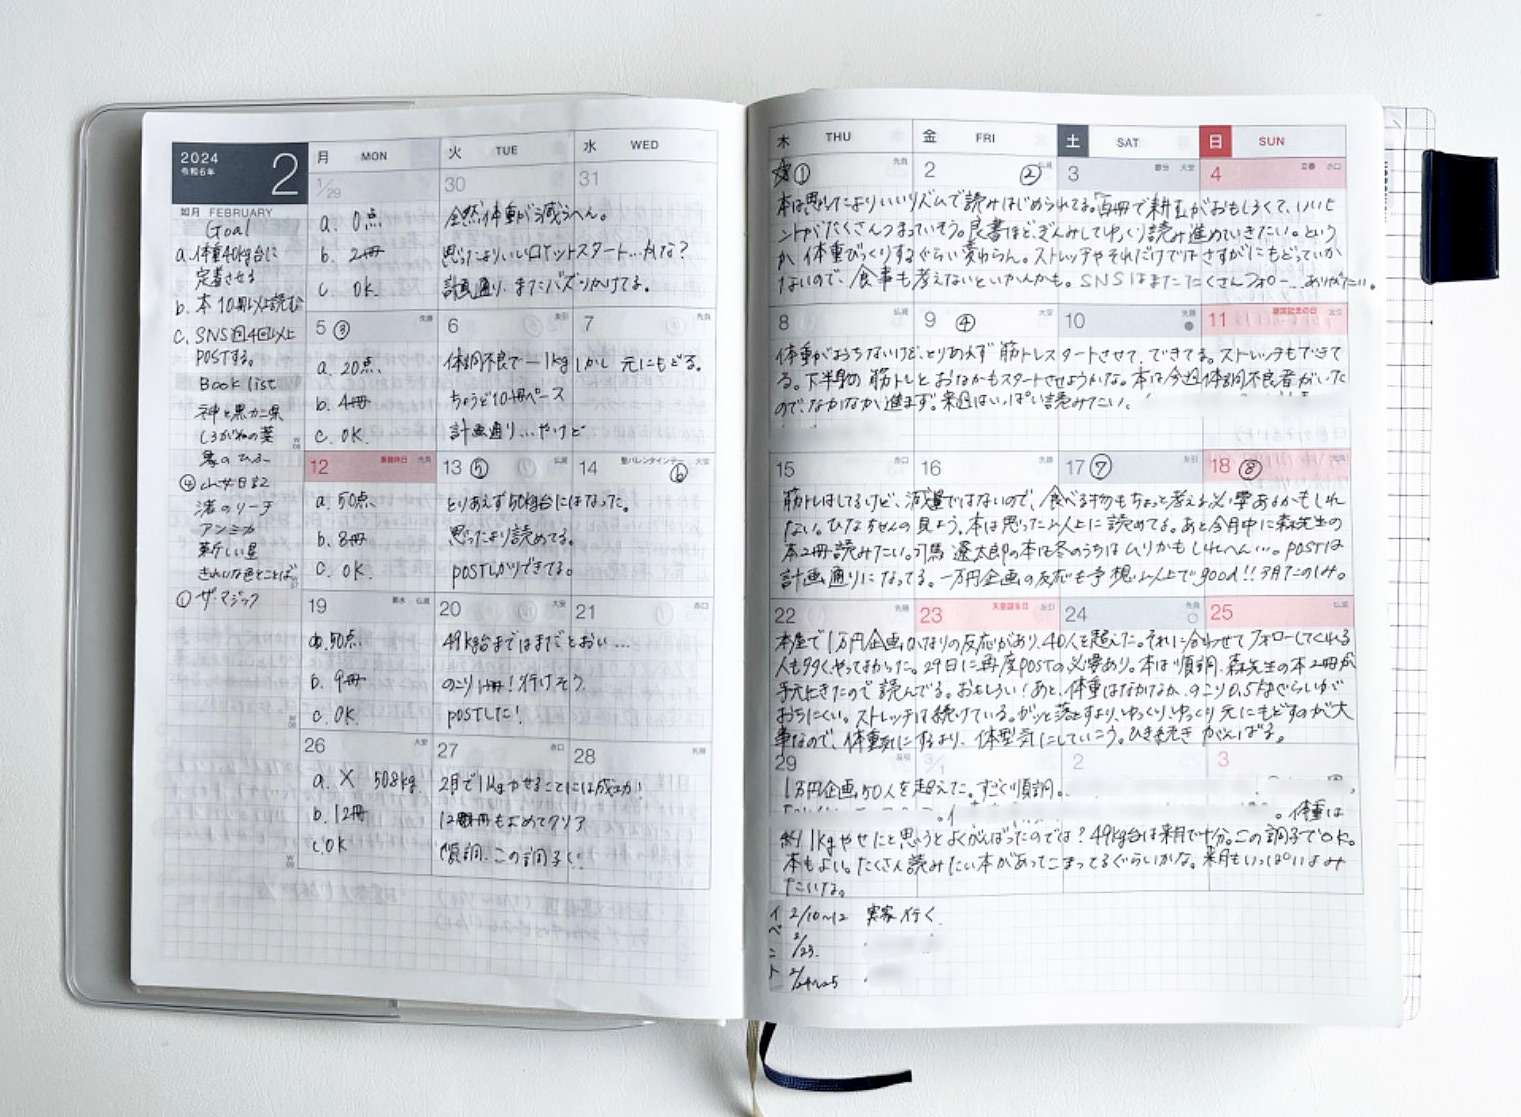 2024
令和6年
2
如月 FEBRUARY
月 MON
火 TUE
水 WED
1/29
30
31
Goal
a. 体重40kg台に
定着させる
b. 本10冊以上読む
c. SNS週4回以上
POSTする。
Book list
神と黒カニ県
しろがねの葉
④
渚のリーチ
アンミカ
新しい星
きれいな色とことば
① ザ・マジック
a. 0点 全然体重が減らへん。
b. 2冊 思ったよりいいロケットスタート…かな?
c. OK. 計画通り、まだバズりかけてる。
5 ③
先勝
6
友引
7
a. 20点、 体調不良で-1kg しかし 元にもどる。
b. 4冊 ちょうど10冊ペース
c. OK. 計画通り…やけど
12
振替休日 先負
13 ⑤
仏滅
14
聖バレンタインデー 大安
⑥
a. 50点 とりあえず50kg台にはなった。
b. 8冊 思ったより読めてる。
c. OK. POSTしっかりできてる。
19
雨水 仏滅
20
大安
21
赤口
a. 50点 49kg台まではまだとおい…
b. 9冊 のこり1冊!行けそう
c. OK. POSTした!
26
大安
27
赤口
28
先勝
a. × 50.8kg 2月で1kgやせることには成功!
b. 12冊 12冊もよめてクリア
c. OK 順調、この調子で!
木 THU
金 FRI
土 SAT
日 SUN
①
先負
2 ②
仏滅
3
節分 大安
4
立春 赤口
本は思ったよりいいリズムで読みはじめられてる。「百冊で耕す」がおもしろくて、いいヒ
ントがたくさんつまっていそう。良書ほど、ぎんみしてゆっくり読み進めていきたい。という
か、体重びっくりするぐらい変わらん。ストレッチやそれだけではさすがにもどっていか
ないので、食事も考えないといかんかも。SNSはまたたくさんフォロー…ありがたい。
8
仏滅
9 ④
大安
10
先勝
11
建国記念の日 友引
体重がおちないけど、とりあえず筋トレスタートさせて、できてる。ストレッチもできて
る。下半身の筋トレとおなかもスタートさせようかな。本は今週体調不良者がいた
ので、なかなか進まず。来週はいっぱい読みたい。
15
赤口
16
先勝
17 ⑦
友引
18 ⑧
先負
筋トレはしてるけど、減量ではないので、食べる物もちょっと考える必要あるかもしれ
ない。ひなちゃんの見よう。本は思った以上に読めてる。あと今月中に森先生の
本2冊読みたい。司馬遼太郎の本は冬のうちはムリかもしれへん…。POSTは
計画通りになってる。一万円企画の反応も予想以上でgood!! 3月たのしみ。
22
先勝
23
天皇誕生日 友引
24
先負
25
仏滅
本座で1万円企画かなりの反応があり、40人を超えた。それに合わせてフォローしてくれる
人も多く、やってよかった。29日に再度POSTの必要あり。本は順調、森先生の本2冊が
手元にきたので読んでる。おもしろい!あと、体重はなかなか、のこり0.5kgぐらいが
おちにくい。ストレッチは続けている。ガッと落とすより、ゆっくり、ゆっくり元にもどすのが大
事なので、体重気にするより、体型気にしていこう。ひき続きがんばる。
29
友引
3/1
2
3
1万円企画50人を超えた。すごく順調。
。体重は
約1kgやせたと思うとよくがんばったのでは?49kg台は来月で十分。この調子でOK。
本もよい。たくさん読みたい本があってこまってるぐらいかな。来月もいっぱいよみ
たいな。
イベント
2/10~12 実家行く
2/23.
2/24~25